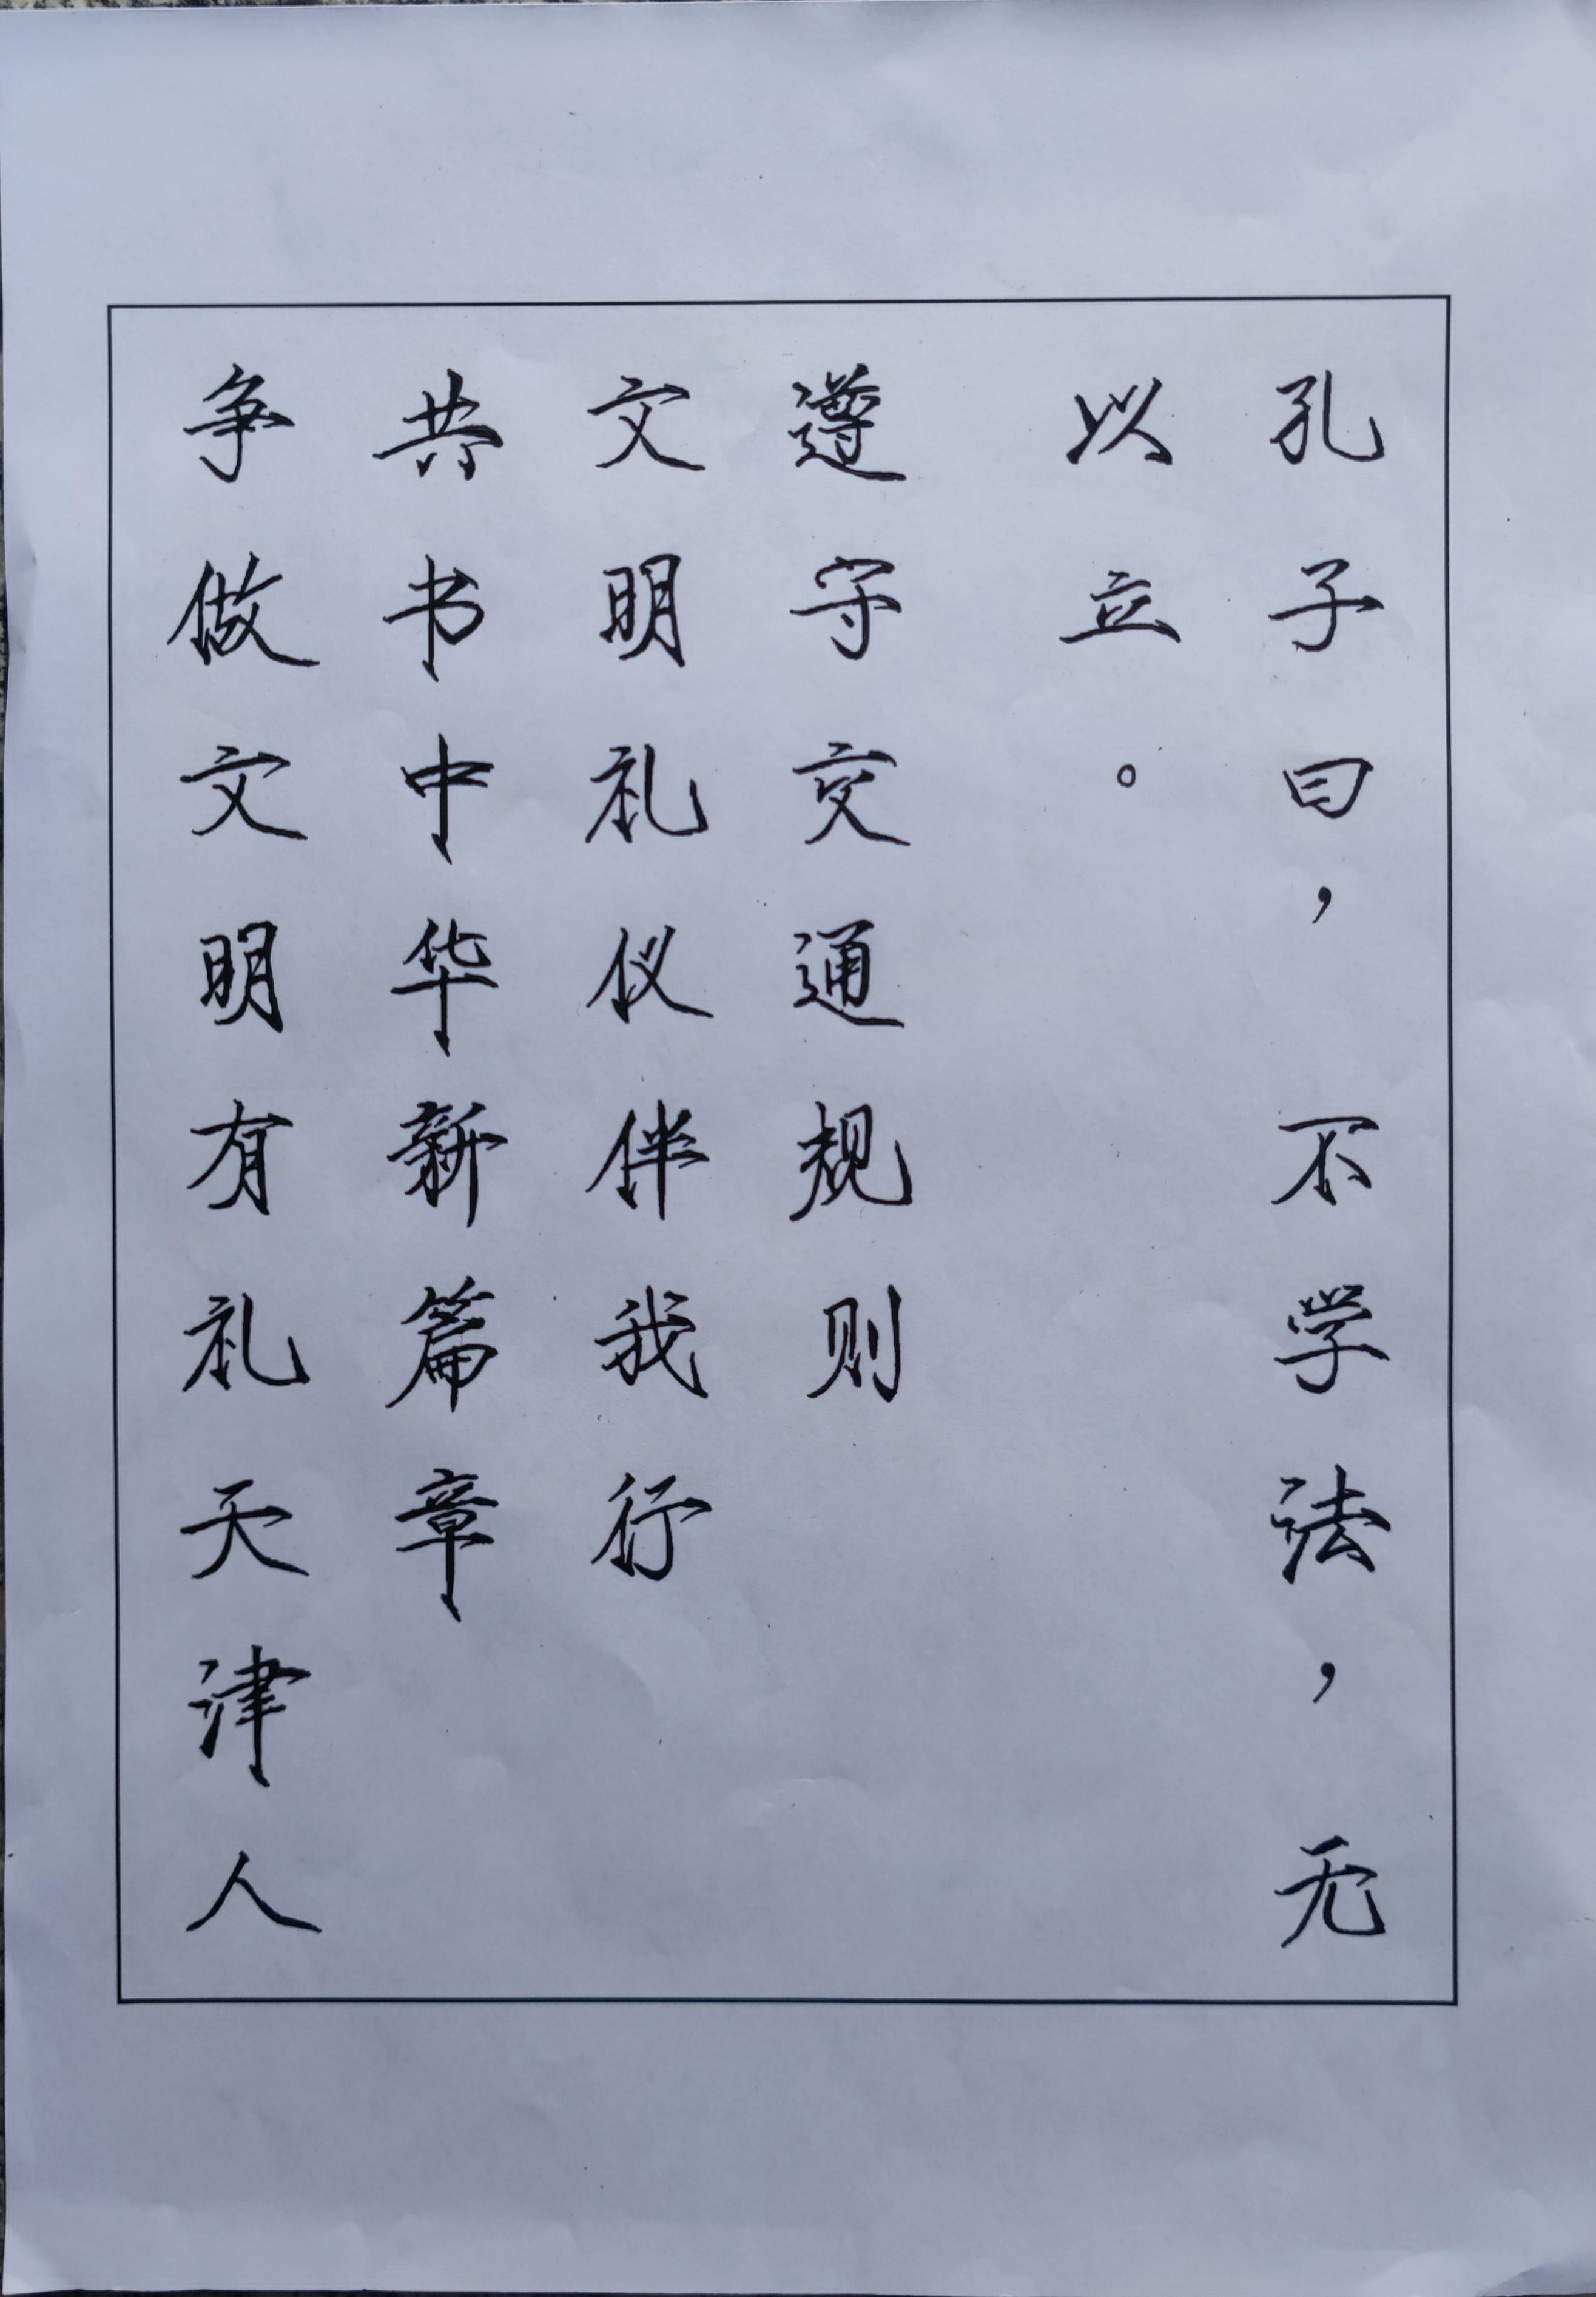 孔子曰，不学法，无
以立。
遵守交通规则
文明礼仪伴我行
共书中华新篇章
争做文明有礼天津人